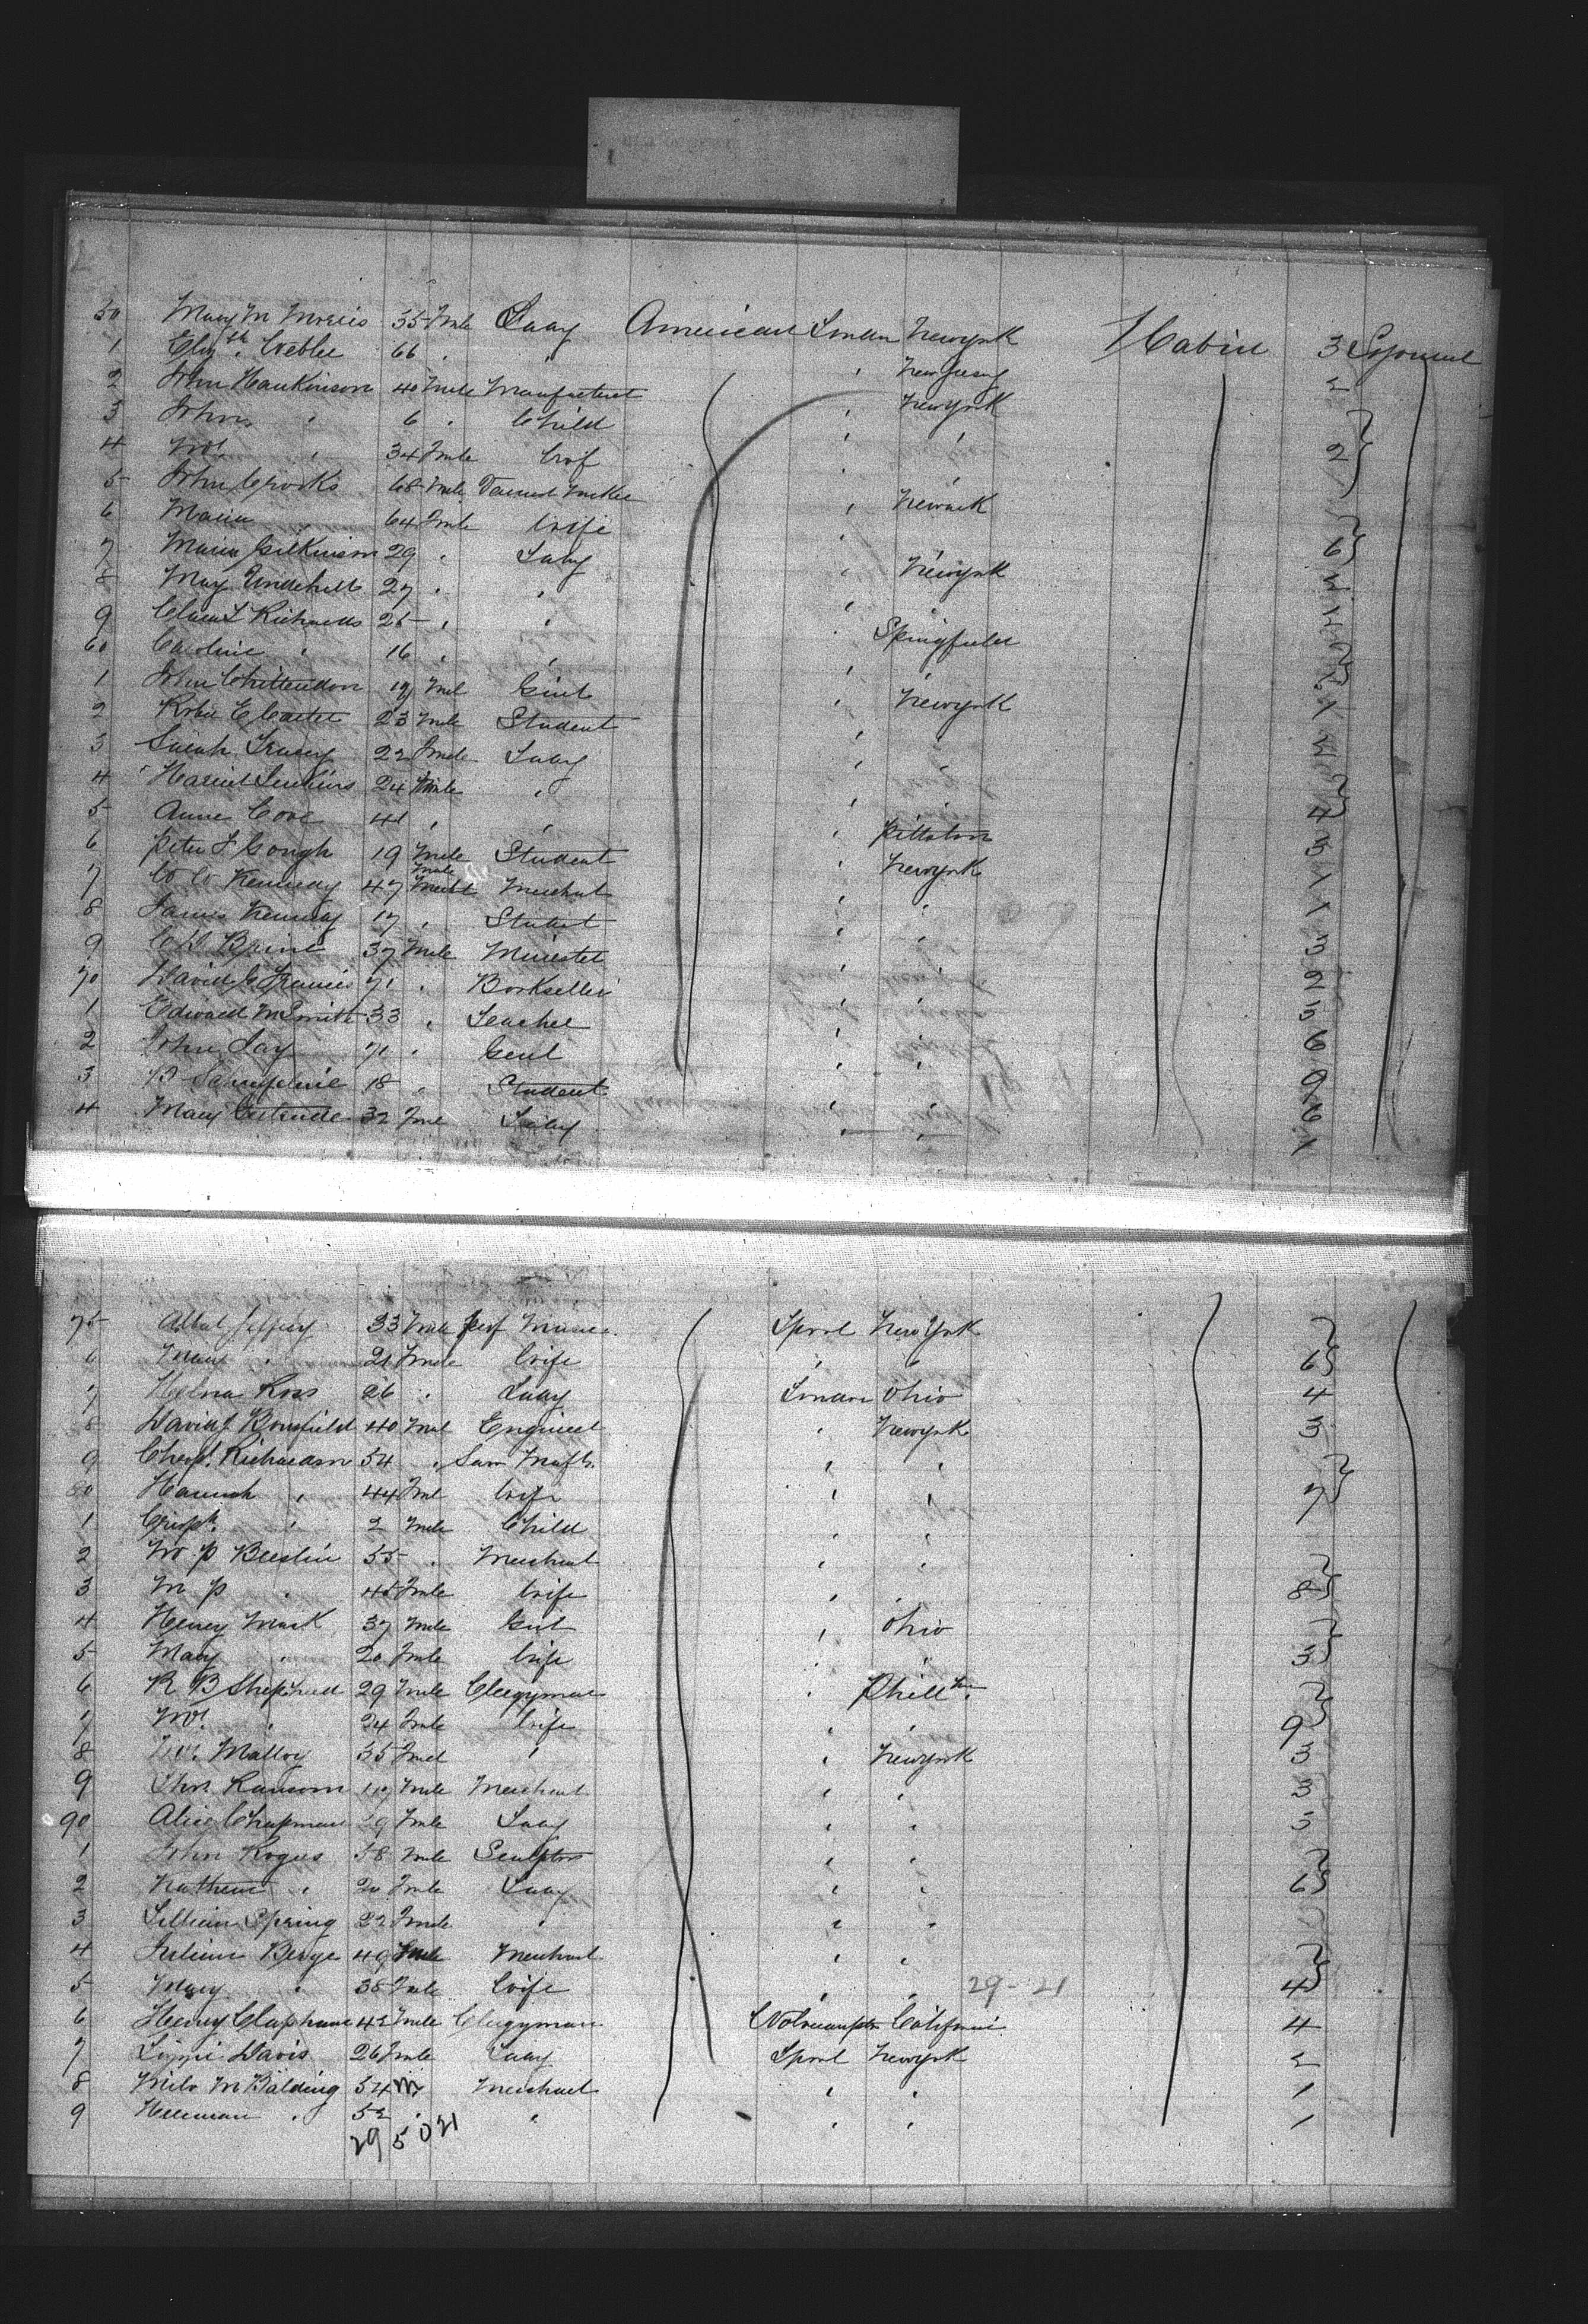 50 Mary M Morris 35 Fmle Lady American London Newyork 1 Cabin 3 Sojourn
1 Elizth Webber 66 " " " New Jersey 2
2 John Hankinson 40 Male Manufacturer " Newyork
3 John " 6 " Child " "
4 Mrs " 34 Fmle Wife " " 2
5 John Crooks 68 Male Varnish Maker " Newark
6 Maria " 64 Fmle Wife " 6
7 Maria Gilkinson 29 " Lady " Newyork 2
8 May Underhill 27 " " "
9 Clara L Richards 25 " " Springfield
60 Caroline " 16 " " " 2
1 John Chittendon 19 Male Gent " Newyork 1
2 Robt E Carter 23 Male Student " 1
3 Sarah Tracey 22 Fmle Lady " " 2
4 Harriet Jenkins 24 Fmle " "
5 Anne Cove 41 " " " Pittston 4
6 Peter F Gough 19 Male Student " Newyork 3
7 Kennedy 47 Male Merchant " " 1
8 James Kennedy 17 " Student " " 1
9 37 Male Minister " " 3
70 David G Francis 71 " Bookseller " " 2
1 Edward M Smith 33 " Teacher " " 3
2 John Jay 71 " Gent " " 6
3 18 " Student " " 9
4 Mary Gertrude 32 Fmle Lady " " 6
75 Albert Jeffery 33 Male Prof Music Lpool New York
6 Mary " 21 Fmle Wife " " 6
7 Helena Ross 26 " Lady London Ohio 4
8 David J Bousfield 40 Male Engineer " Newyork 3
9 Richardson 54 " " "
80 Hannah " 44 Fmle Wife " " 7
1 " 2 Male Child " "
2 W P 55 " Merchant " "
3 M P " 45 Fmle Wife " " 8
4 Henry Mack 37 Male Gent " Ohio
5 Mary " 20 Fmle Wife " " 3
6 R B Shepherd 29 Male Clergyman "
7 Mrs " 24 Fmle Wife " " 9
8 Mrs Malloy 35 Fmle " " Newyork 3
9 Ransom Male Merchant " " 3
90 Alice Chapman 29 Fmle Lady " " 3
1 John Rogers 58 Male Sculptor " "
2 " 20 Fmle Lady " " 6
3 Lillian Spring 22 Fmle " " "
4 Julien Berge 49 Male Merchant " "
5 Mary " 38 Fmle Wife " " 29-21 4
6 Henry Clapham 42 Male Clergyman California 4
7 Lizzie Davis 26 Fmle Lady Lpool Newyork 2
8 Milo M Balding 54 M Merchant " " 1
9 Herman " 52 " " " " 1
29 5 0 21